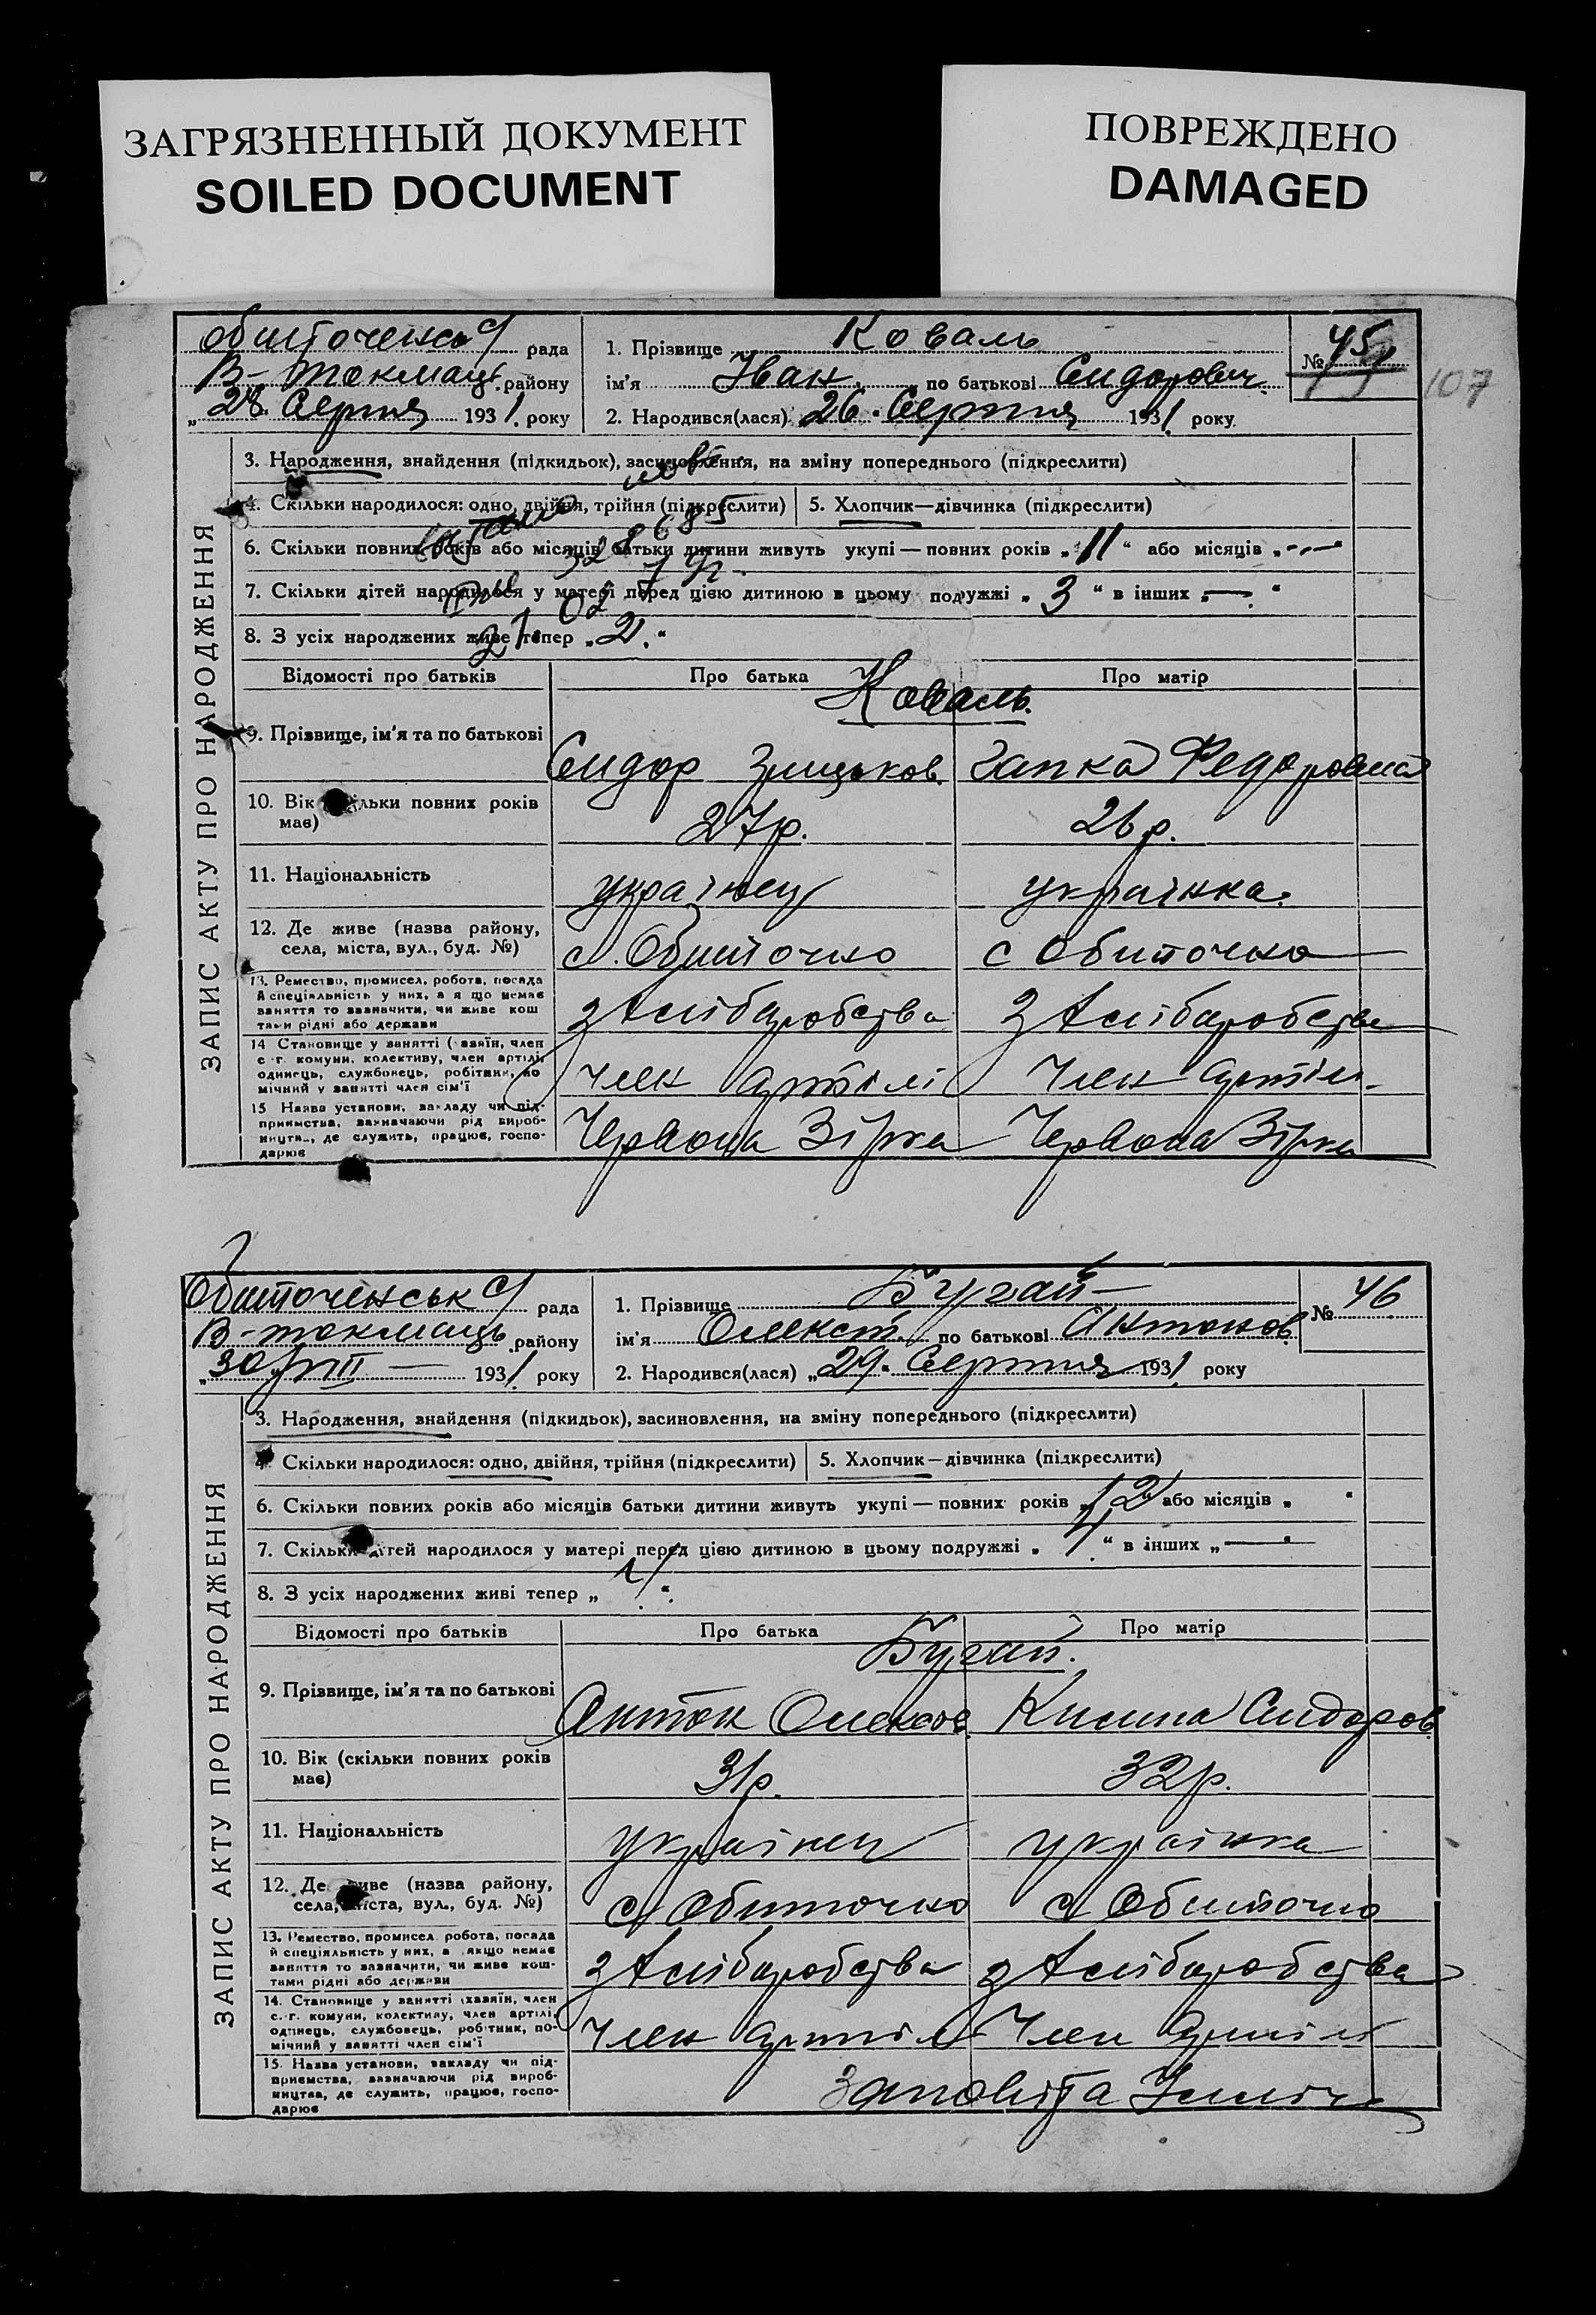 ЗАГРЯЗНЕННЫЙ ДОКУМЕНТ
SOILED DOCUMENT
ПОВРЕЖДЕНО
DAMAGED
ЗАПИС АКТУ ПРО НАРОДЖЕННЯ
рада
В-Токмацьк. району
„28. Серпня 1931. року
1. Прізвище Коваль
ім'я Іван. по батькові Сидорович.
2. Народився(лася) 26. Серпня 1931. року.
№ 45
107
3. Народження, знайдення (підкидьок), засиновлення, на зміну попереднього (підкреслити)
4. Скільки народилося: одно, двійня, трійня (підкреслити)
5. Хлопчик—дівчинка (підкреслити)
6. Скільки повних років або місяців батьки дитини живуть укупі — повних років „11“ або місяців „-·-“
7. Скільки дітей народилося у матері перед цією дитиною в цьому подружжі „3“ в інших „—“
8. З усіх народжених живе тепер „2.“
Відомості про батьків
Про батька
Про матір
Коваль.
9. Прізвище, ім'я та по батькові
Сидор Грицьков.
Гапка Федоровна
10. Вік скільки повних років
має)
27р.
26р.
11. Національність
українец
українка.
12. Де живе (назва району,
села, міста, вул., буд. №)
с. Обиточно
с Обиточно
13. Ремество, промисел, робота, посада
й спеціяльність у них, а я що немає
заняття то зазначити, чи живе кош
тами рідні або держави
з хліборобства
з хліборобства
14 Становище у занятті (хазяїн, член
с.-г. комуни, колективу, член артілі,
одинець, службовець, робітник, по
мічний у занятті член сім'ї
Член артілі
Член артіли
15 Назва установи, закладу чи під-
приємства, зазначаючи рід вироб-
ництва, де служить, працює, госпо-
дарює
Червона Зірка
Червона Зірка
ЗАПИС АКТУ ПРО НАРОДЖЕННЯ
Обиточенськ с/ рада
В-токмацьк району
„30/VIII — 1931. року
1. Прізвище Бугай
ім'я Олексій. по батькові Антонов.
2. Народився(лася) „29. Серпня 1931. року
№ 46
3. Народження, знайдення (підкидьок), засиновлення, на зміну попереднього (підкреслити)
4. Скільки народилося: одно, двійня, трійня (підкреслити)
5. Хлопчик—дівчинка (підкреслити)
6. Скільки повних років або місяців батьки дитини живуть укупі — повних років „12“ або місяців „ “
7. Скільки дітей народилося у матері перед цією дитиною в цьому подружжі „4.“ в інших „—“
8. З усіх народжених живі тепер „ “
Відомості про батьків
Про батька
Про матір
Бугай.
9. Прізвище, ім'я та по батькові
Антон Олексов.
Килина Сидоров.
10. Вік (скільки повних років
має)
31р.
32р.
11. Національність
українец
українка
12. Де живе (назва району,
села, міста, вул., буд. №)
с/ Обиточно
с/ Обиточно
13. Ремество, промисел робота, посада
й спеціяльність у них, а якщо немає
заняття то зазначити, чи живе кош-
тами рідні або держави
з хліборобства
з хліборобства
14. Становище у занятті (хазяїн, член
с.-г. комуни, колективу, член артілі,
одинець, службовець, робітник, по-
мічний у занятті член сім'ї
Член артілі
Член артілі
15. Назва установи, закладу чи під-
приємства, зазначаючи рід вироб-
ництва, де служить, працює, госпо-
дарює
Заповіта Ілліча